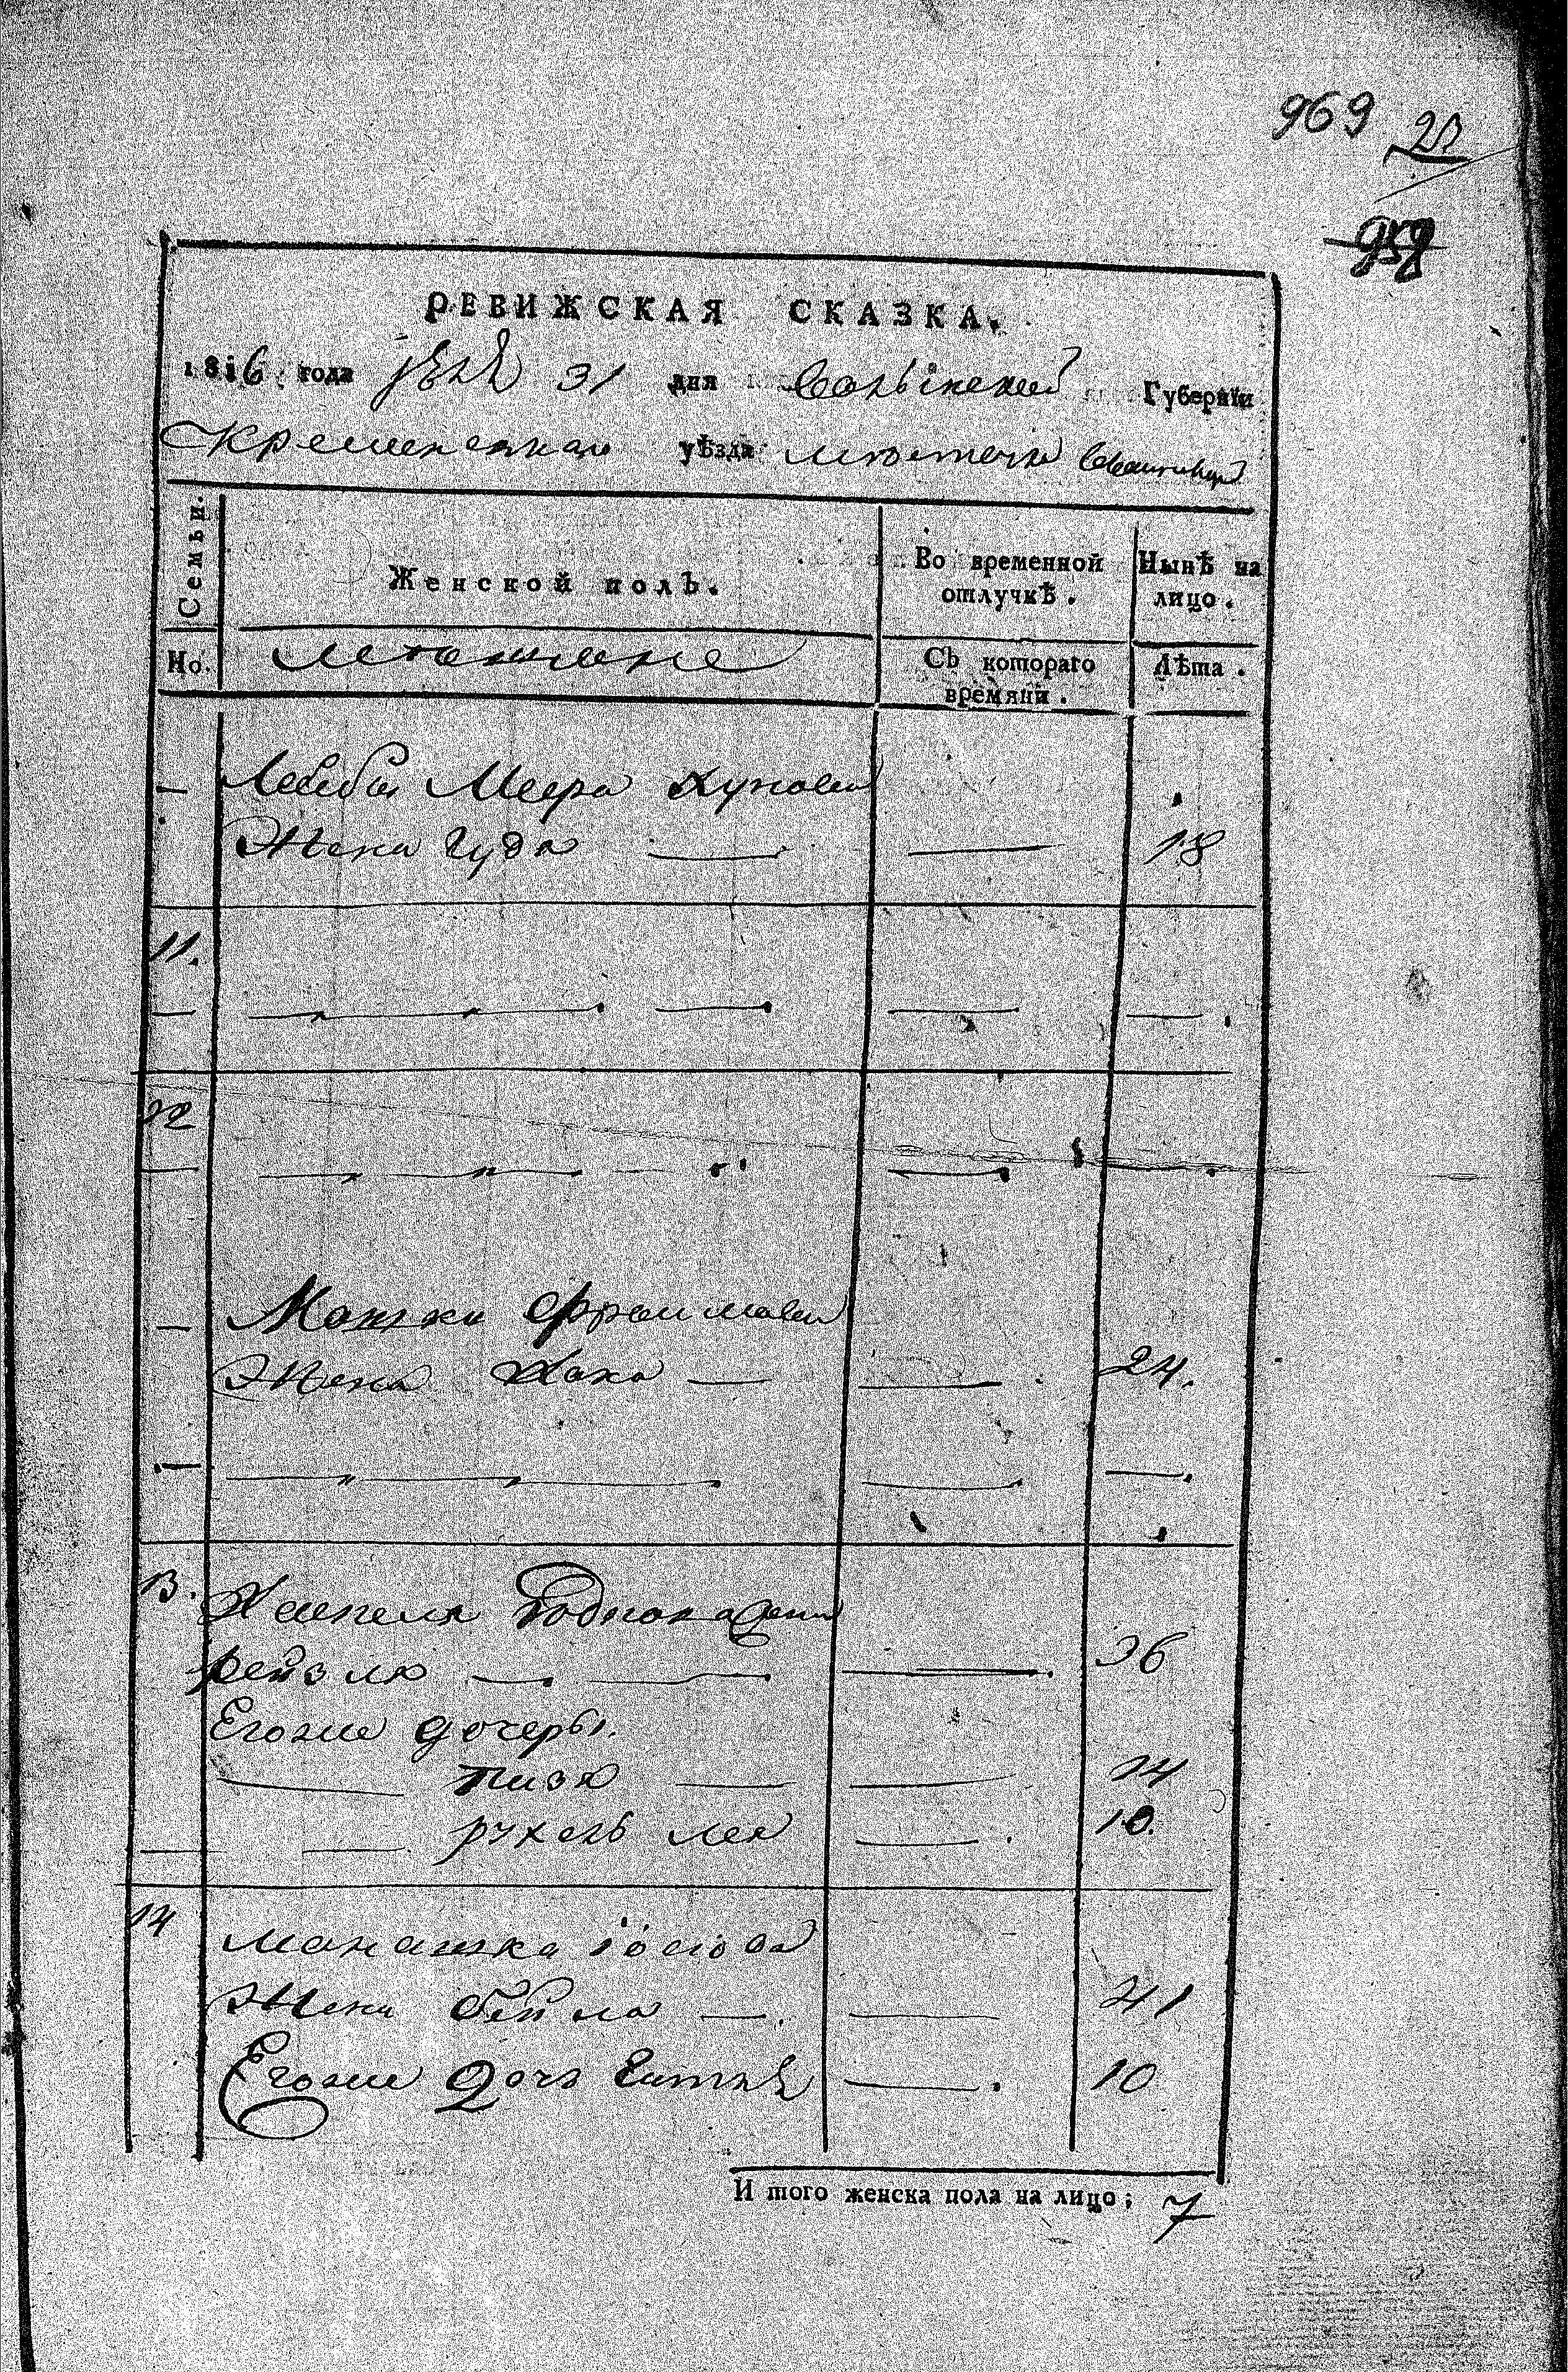 969 20
958
РЕВИЖСКАЯ СКАЗКА.
1816 года 31 дня Волынской Губернїи
Кременецкаго уѣзда мѣстечка
Семьи.
Женской полъ.
Во временной отлучкѣ.
Нынѣ на лицо.
No.
мещане
Съ котораго времяни.
Лѣта.
— Лейбы Меера
Жена Гудя — — 18
11.
12
— Мошка Фроимова
Жена Хака — — 24.
13.
рейзля — — 36
Егоже дочеры.
— — 14
— рухель лея — 10.
14
Манашка Іосіова
Жена бейла — — 41
Егоже Дочь — 10
И того женска пола на лицо; 7